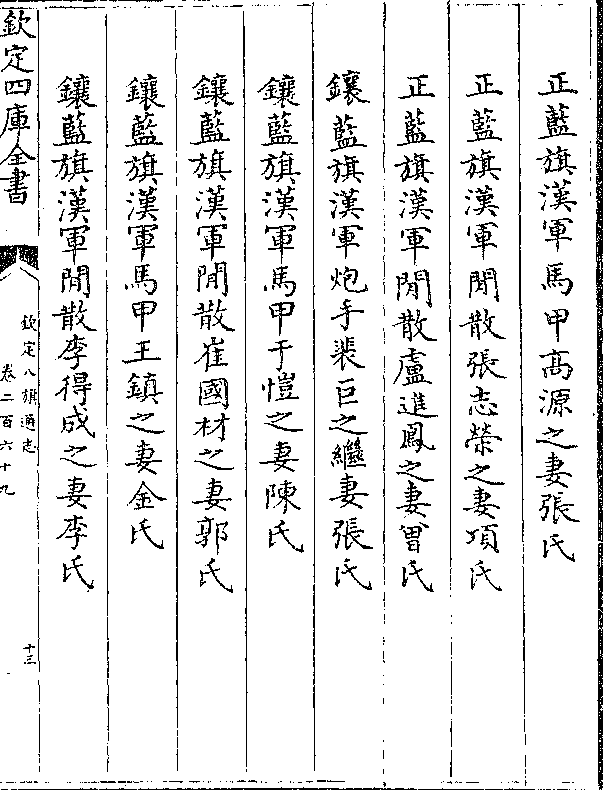 正藍旗漢軍馬甲髙源之妻張氏
正藍旗漢軍閒散張志榮之妻項氏
正藍旗漢軍閒散盧進鳳之妻曾氏
鑲藍旗漢軍炮手裴巨之繼妻張氏
鑲藍旗漢軍馬甲于愷之妻陳氏
鑲藍旗漢軍閒散崔國材之妻郭氏
鑲藍旗漢軍馬甲王鎮之妻金氏
鑲藍旗漢軍閒散李得成之妻李氏
欽定四庫全書
欽定八旗通志
卷二百六十九
十三